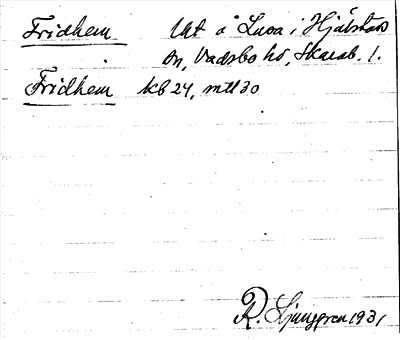 Fridhem Utt å Lusa i Hjälstads
sn, Vadsbo hd, Skarab. l.
Fridhem kb 24, mtl 30
R. Ljunggren 1931